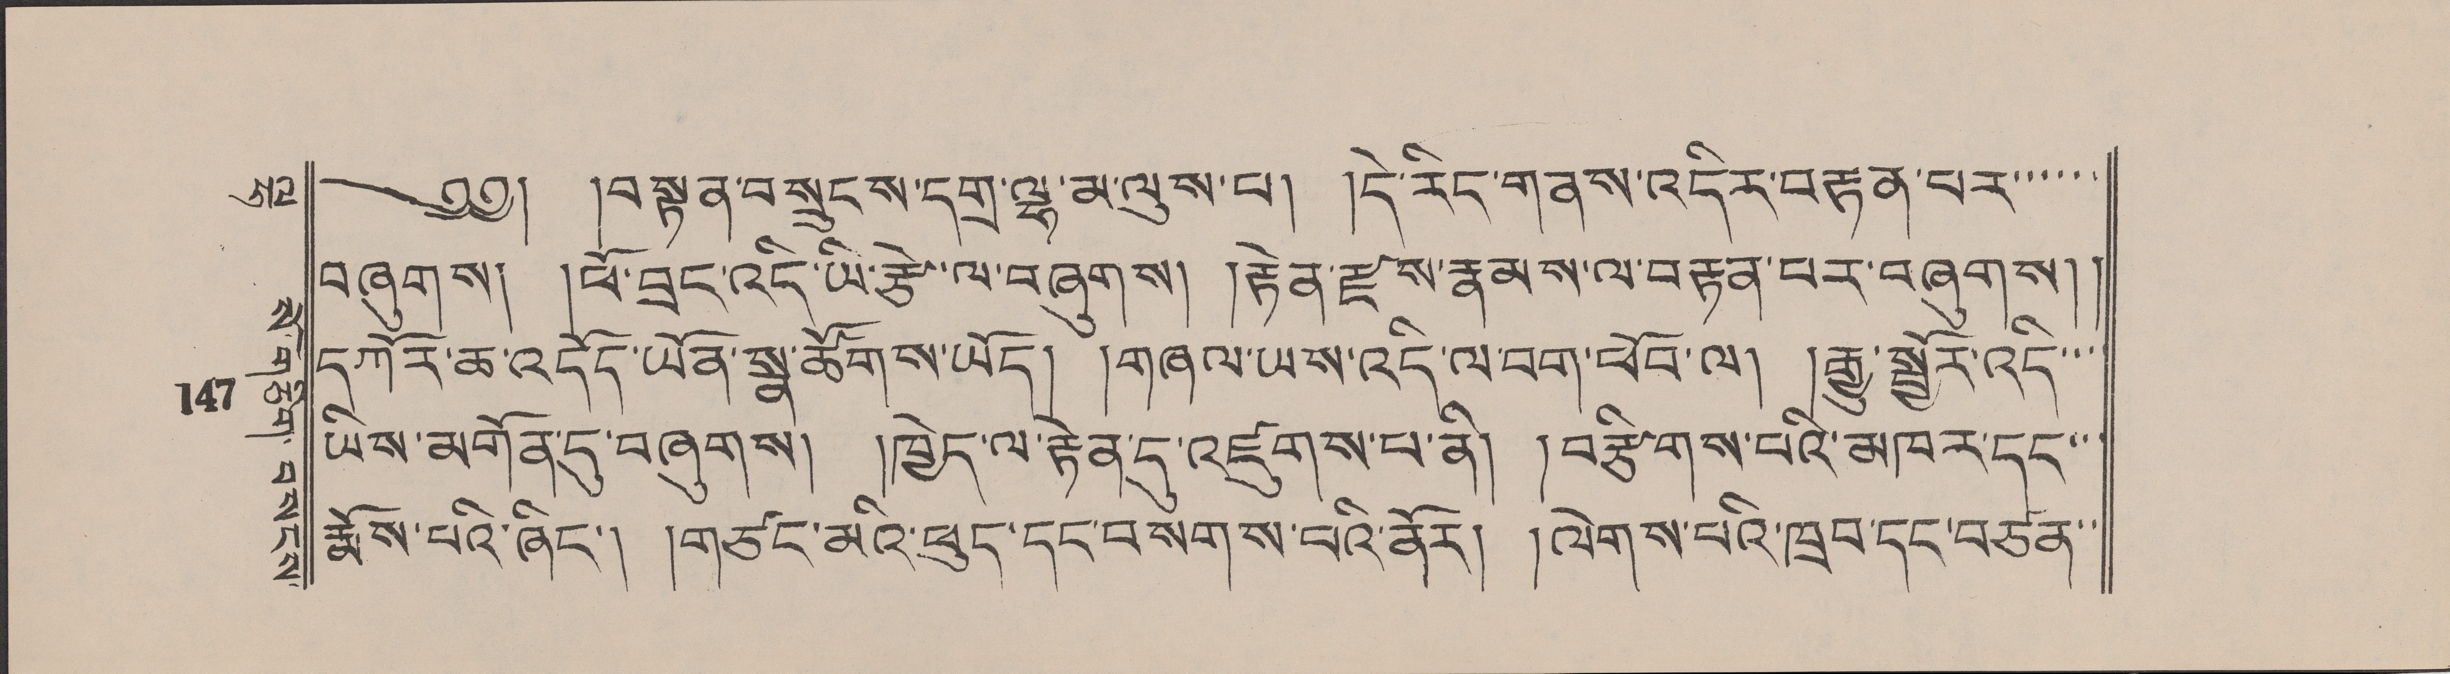 ༄༅། །བསྟན་བསྲུངས་དགྲ་ལྷ་མ་ལུས་པ། །དེ་རིང་གནས་འདིར་བརྟན་པར་་་་་་
བཞུགས། །ཕོ་བྲང་འདི་ཡི་རྩེ་ལ་བཞུགས། །རྟེན་རྫས་རྣམས་ལ་བརྟན་པར་བཞུགས། །
དཀོར་ཆ་འདོད་ཡོན་སྣ་ཚོགས་ཡོད། །གཞལ་ཡས་འདི་ལ་བག་ཕེབ་ལ། །རྒྱུ་སྦྱོར་འདི་་་
ཡིས་མགོན་དུ་བཞུགས། །ཁྱེད་ལ་རྟེན་དུ་འཛུགས་པ་ནི། །བརྩིགས་པའི་མཁར་དང་་
རྨོས་པའི་ཞིང་། །གཙང་མའི་ཕུད་དང་བསགས་པའི་ནོར། །ལེགས་པའི་ཁྲབ་དང་བཙན་་
147